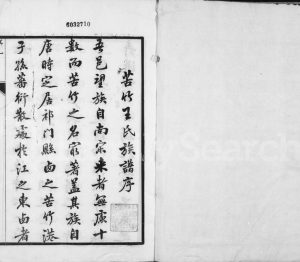 6032710
苦竹王氏族譜序
吾邑望族自南宗來者無慮十
數而苦竹之名最著蓋其族自
唐時定居祁門縣西之苦竹港
子孫蕃衍散處於江之東西者